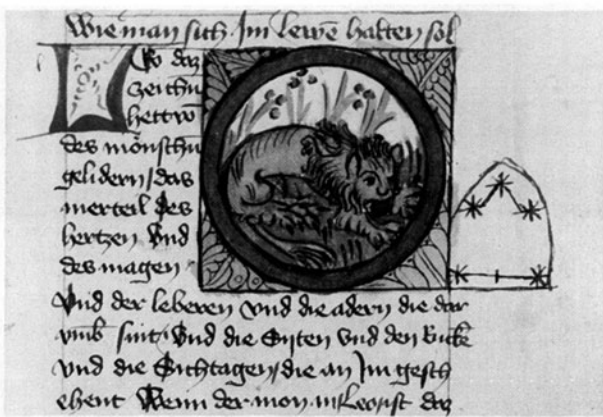 Wie man sich Im lewē halten sol
Leo daz
zeichn
hett vō
des mönschn
gelidern / das
merteil des
hertzen Vnd
des magen
Vnd der leberen vnd die adern die dar
vmb sint / Vnd die Siten vnd den Rucke
vnd die Sichtagen / die an Jm gesch
ehent Wenn der mon in Leon ist daz